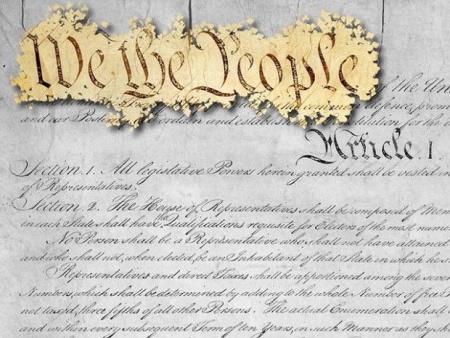 We the People
of the Uni
the common defence, prom
and our Posterity, do ordain and establish this Constitution for the
Article. I.
Section. 1. All legislative Powers herein granted shall be vested in
of Representatives.
Section. 2. The House of Representatives shall be composed of Mem
in each State shall have the Qualifications requisite for Electors of the most numer
No Person shall be a Representative who shall not have attained
and who shall not, when elected, be an Inhabitant of that State in which he s
Representatives and direct Taxes shall be apportioned among the sever
Numbers, which shall be determined by adding to the whole Number of free P
not taxed, three fifths of all other Persons. The actual Enumeration shall
and within every subsequent Term of ten Years, in such Manner as they sh